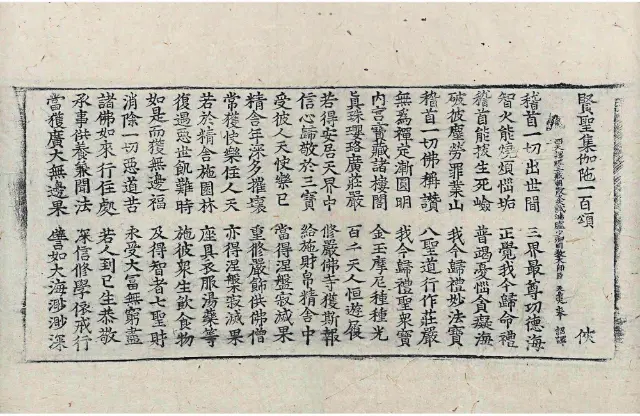 賢聖集伽陁一百頌 俠
奉 詔譯
稽首一切出世間 三界最尊功德海
智火能燒煩惱垢 正覺我今歸命禮
稽首能拔生死嶮 普竭憂惱貪癡海
破彼塵勞罪業山 我今歸禮妙法寶
稽首一切佛稱讚 八聖道行作莊嚴
無爲禪定漸圓明 我今歸禮聖衆寶
內宮寶藏諸樓閣 金玉摩尼種種光
眞珠瓔珞廣莊嚴 百千天人恒遊履
若得安居天界中 修嚴佛寺獲斯報
信心歸敬於三寶 給施財帛精舍中
受彼人天快樂已 當得涅槃寂滅果
精舍年深多摧壞 重修嚴飾供佛僧
常獲快樂在人天 亦得涅槃寂滅果
若於精舍施園林 座具衣服湯藥等
復遇惡世飢難時 施彼衆生飲食物
如是而獲無邊福 及得智者七聖財
消除一切惡道苦 永受大富無窮盡
諸佛如來行住處 若人到已生恭敬
承事供養兼聞法 深信修學像戒行
當獲廣大無邊果 譬如大海渺渺深